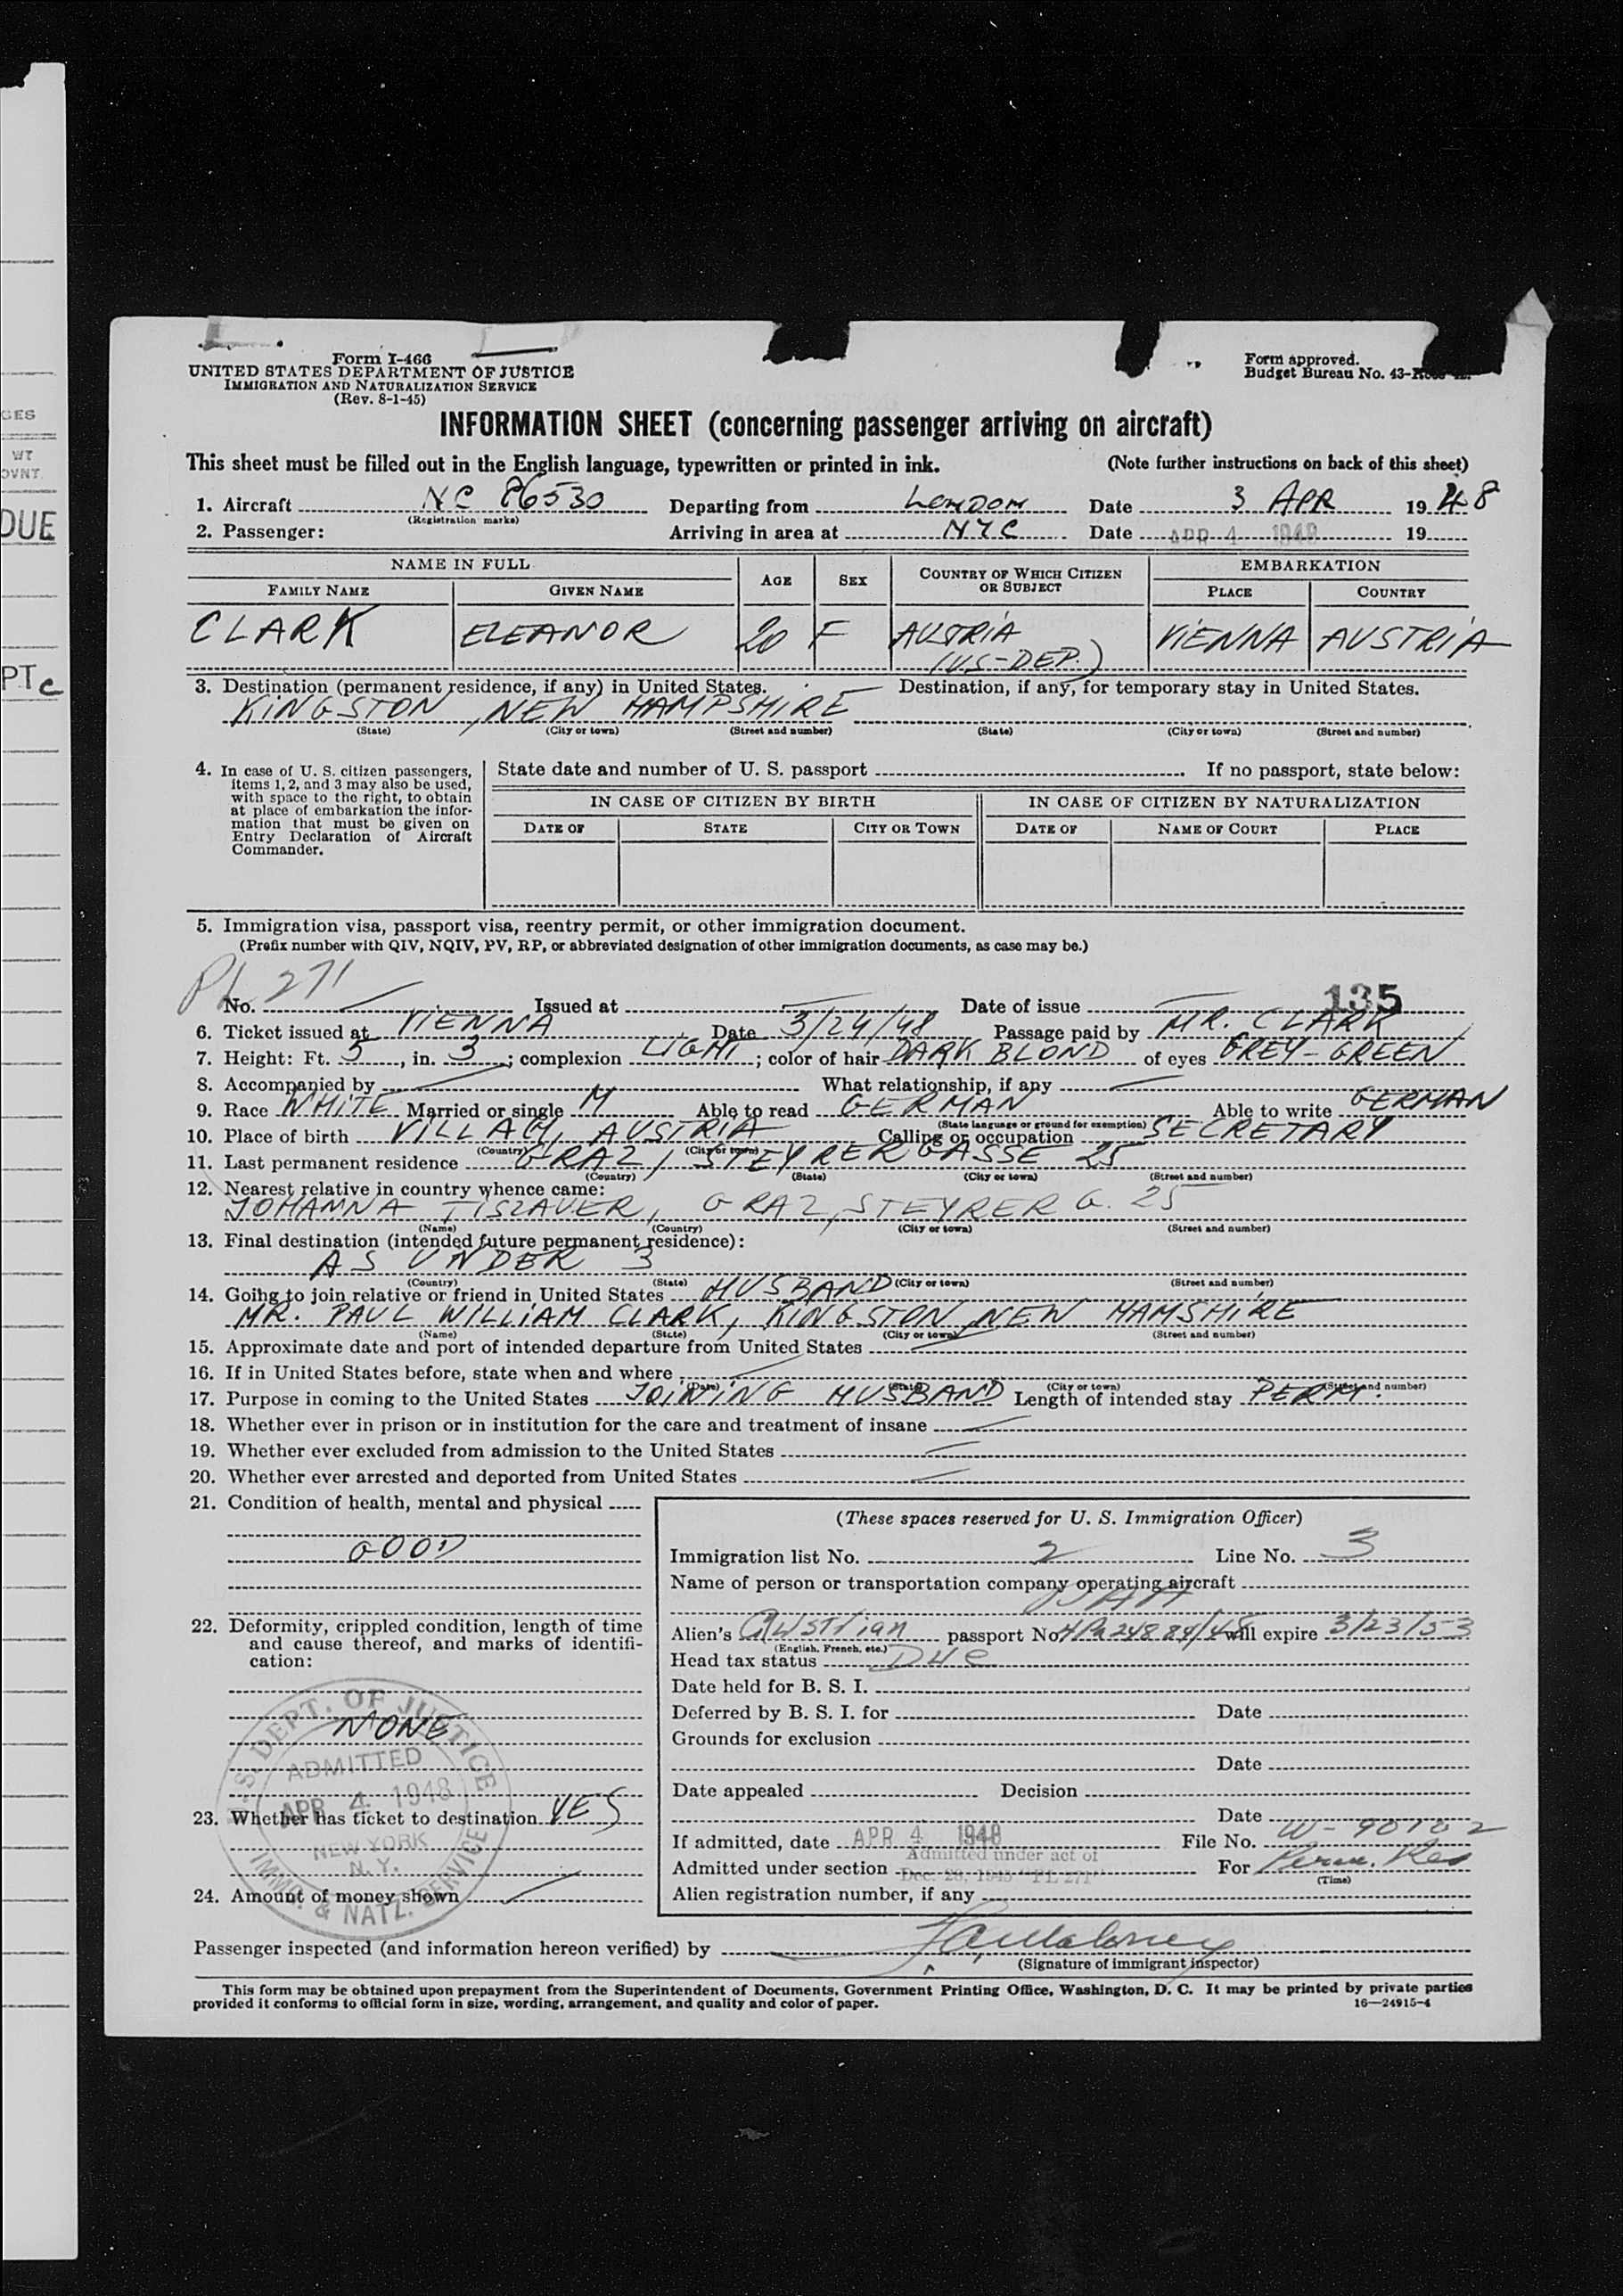 GES
WT
OVNT.
DUE
PTc
Form I-466
UNITED STATES DEPARTMENT OF JUSTICE
IMMIGRATION AND NATURALIZATION SERVICE
(Rev. 8-1-45)
Form approved.
Budget Bureau No. 43-
INFORMATION SHEET (concerning passenger arriving on aircraft)
This sheet must be filled out in the English language, typewritten or printed in ink. (Note further instructions on back of this sheet)
1. Aircraft NC 86530 Departing from LONDON Date 3 APR 1948
(Registration marks)
2. Passenger: Arriving in area at NYC Date APR 4 1948 19
NAME IN FULL AGE SEX COUNTRY OF WHICH CITIZEN OR SUBJECT EMBARKATION
FAMILY NAME GIVEN NAME PLACE COUNTRY
CLARK ELEANOR 20 F AUSTRIA VIENNA AUSTRIA
(US-DEP.)
3. Destination (permanent residence, if any) in United States. Destination, if any, for temporary stay in United States.
KINGSTON, NEW HAMPSHIRE
(State) (City or town) (Street and number) (State) (City or town) (Street and number)
4. In case of U. S. citizen passengers, items 1, 2, and 3 may also be used, with space to the right, to obtain at place of embarkation the information that must be given on Entry Declaration of Aircraft Commander.
State date and number of U. S. passport If no passport, state below:
IN CASE OF CITIZEN BY BIRTH IN CASE OF CITIZEN BY NATURALIZATION
DATE OF STATE CITY OR TOWN DATE OF NAME OF COURT PLACE
5. Immigration visa, passport visa, reentry permit, or other immigration document.
(Prefix number with QIV, NQIV, PV, RP, or abbreviated designation of other immigration documents, as case may be.)
PL 271
No. Issued at Date of issue 135
6. Ticket issued at VIENNA Date 3/24/48 Passage paid by MR. CLARK
7. Height: Ft. 5, in. 3; complexion LIGHT; color of hair DARK BLOND of eyes GREY-GREEN
8. Accompanied by What relationship, if any
9. Race WHITE Married or single M Able to read GERMAN Able to write GERMAN
(State language or ground for exemption)
10. Place of birth VILLACH, AUSTRIA Calling or occupation SECRETARY
(Country) (City or town)
11. Last permanent residence GRAZ, STEYRERGASSE 25
(Country) (State) (City or town) (Street and number)
12. Nearest relative in country whence came:
JOHANNA TISLAUER, GRAZ, STEYRER G. 25
(Name) (Country) (City or town) (Street and number)
13. Final destination (intended future permanent residence):
AS UNDER 3
(Country) (State) (City or town) (Street and number)
14. Going to join relative or friend in United States HUSBAND
MR. PAUL WILLIAM CLARK, KINGSTON, NEW HAMSHIRE
(Name) (State) (City or town) (Street and number)
15. Approximate date and port of intended departure from United States
16. If in United States before, state when and where
(Date) (State) (City or town) (Street and number)
17. Purpose in coming to the United States JOINING HUSBAND Length of intended stay PERM.
18. Whether ever in prison or in institution for the care and treatment of insane
19. Whether ever excluded from admission to the United States
20. Whether ever arrested and deported from United States
21. Condition of health, mental and physical
GOOD
22. Deformity, crippled condition, length of time and cause thereof, and marks of identification:
NONE
U.S. DEPT. OF JUSTICE
ADMITTED
APR 4 1948
NEW YORK
N.Y.
IMMR. & NATZ. SERVICE
23. Whether has ticket to destination YES
24. Amount of money shown
(These spaces reserved for U. S. Immigration Officer)
Immigration list No. 2 Line No. 3
Name of person or transportation company operating aircraft
Alien's Austrian passport No. will expire 3/23/53
(English, French, etc.)
Head tax status Due
Date held for B. S. I.
Deferred by B. S. I. for Date
Grounds for exclusion
Date
Date appealed Decision
Date
If admitted, date APR 4 1948 File No.
Admitted under act of
Admitted under section Dec. 28, 1945 "PL 271" For Perm. Res
(Time)
Alien registration number, if any
Passenger inspected (and information hereon verified) by
(Signature of immigrant inspector)
This form may be obtained upon prepayment from the Superintendent of Documents, Government Printing Office, Washington, D. C. It may be printed by private parties
provided it conforms to official form in size, wording, arrangement, and quality and color of paper. 16—24915-4